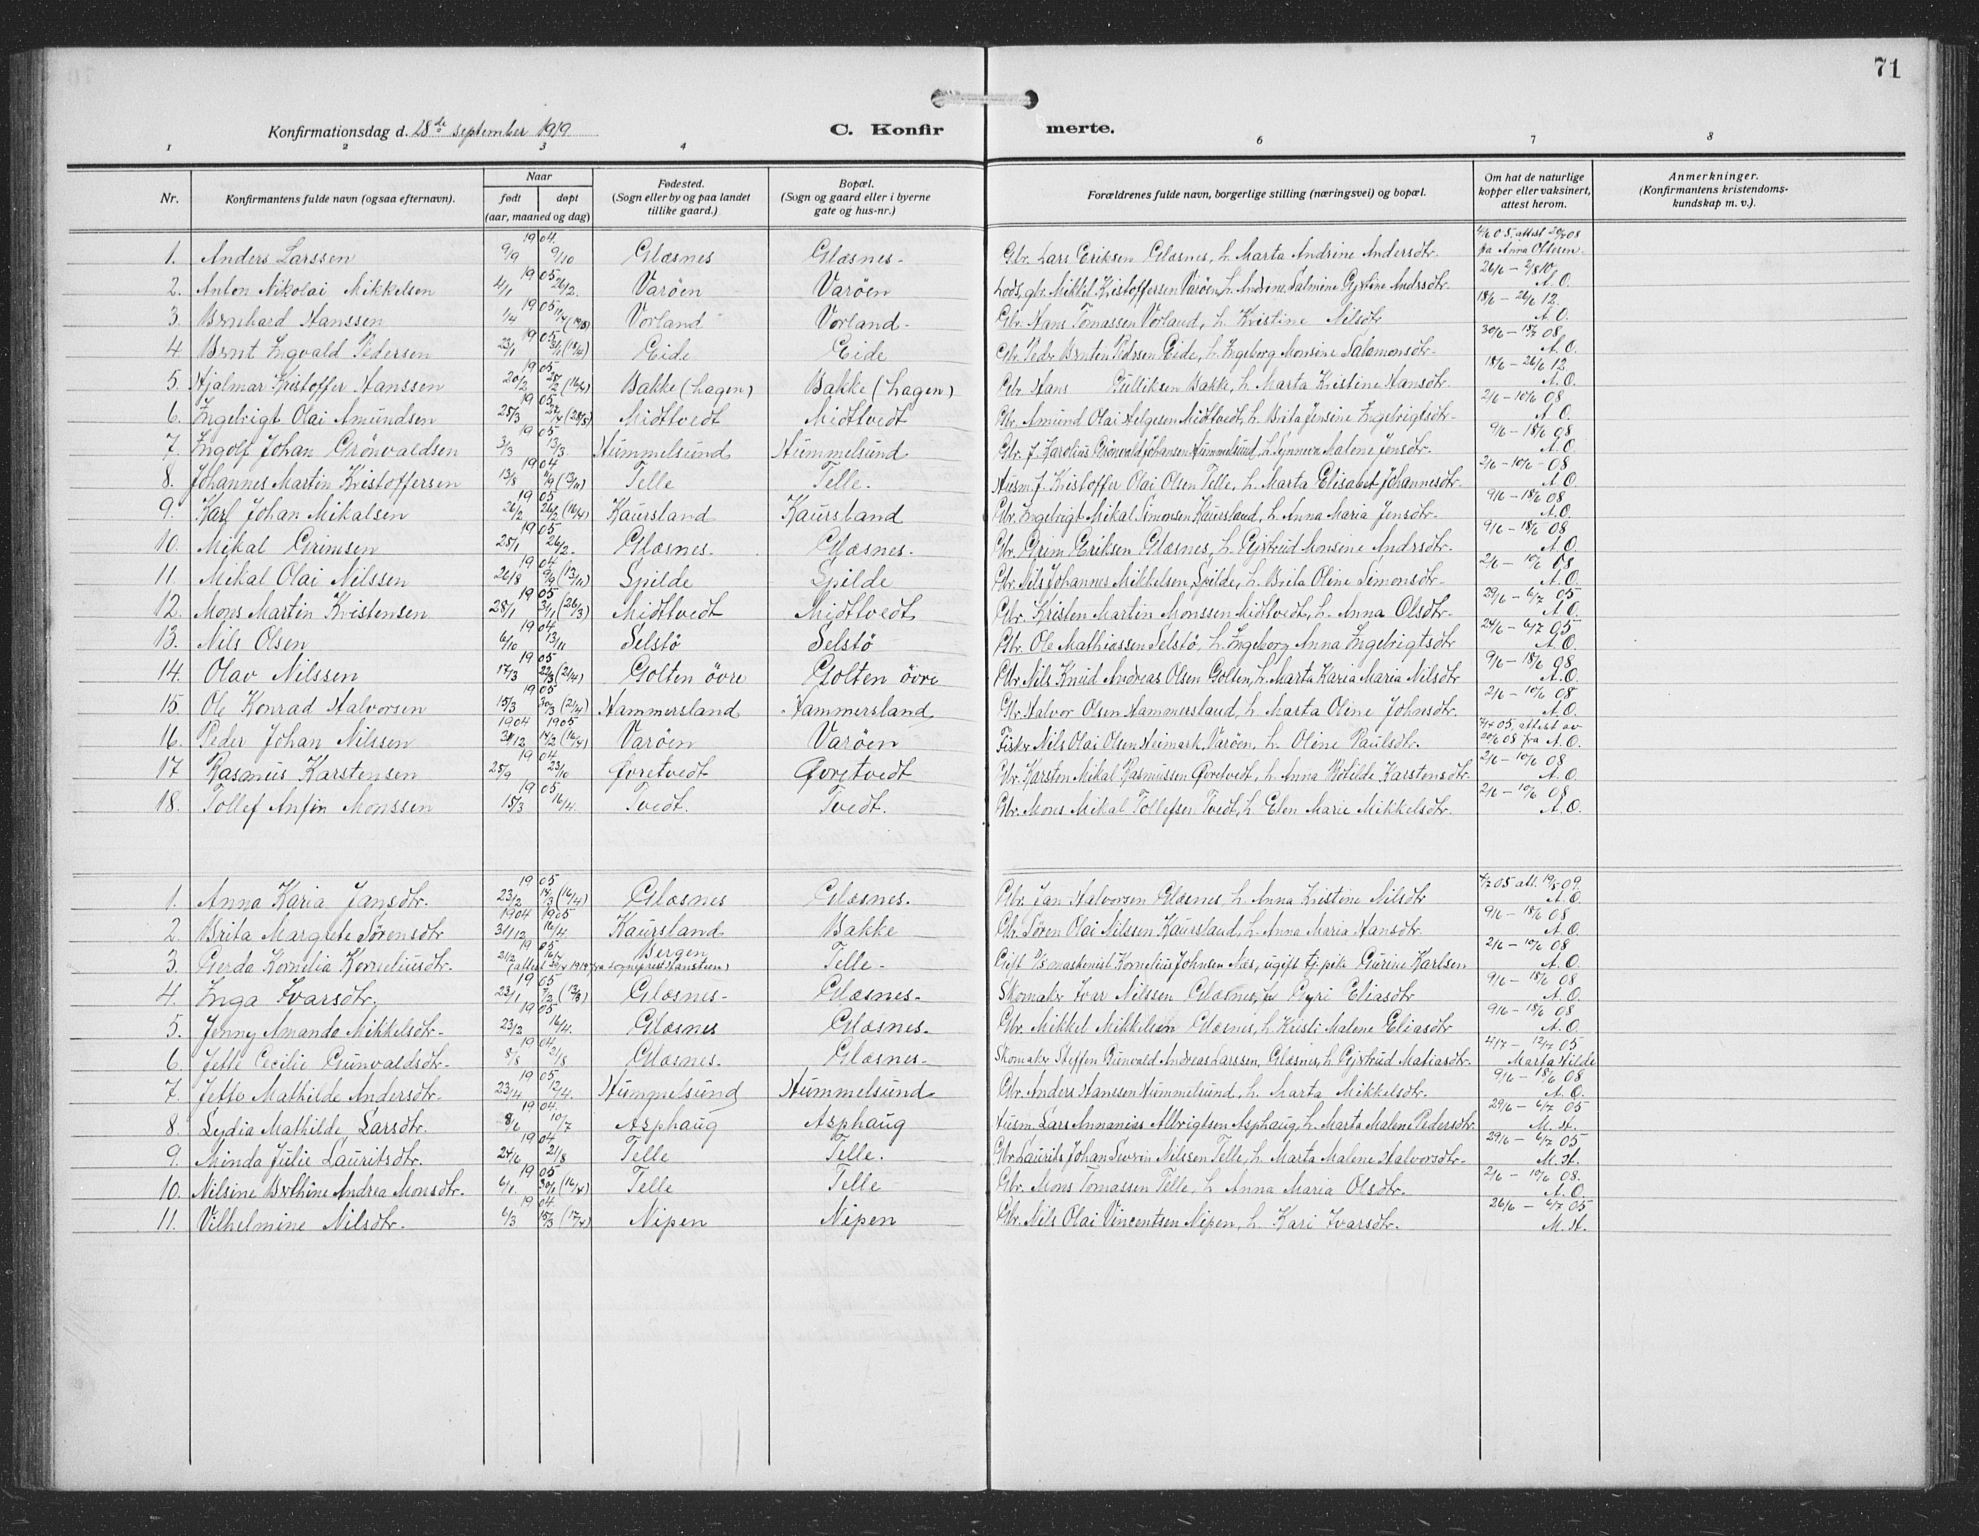 71
Konfirmationsdag d. 28de september 1919 C. Konfirmerte.
1 2 3 4 6 7 8
Nr. Konfirmantens fulde navn (ogsaa efternavn). Naar født døpt (aar, maaned og dag) Fødested. (Sogn eller by og paa landet tillike gaard.) Bopæl. (Sogn og gaard eller i byerne gate og hus-nr.) Forældrenes fulde navn, borgerlige stilling (næringsvei) og bopæl. Om hat de naturlige kopper eller vaksinert, attest herom. Anmerkninger. (Konfirmantens kristendoms-kundskap m. v.).
1. Anders Larssen 1904. 9/9 9/10 Glæsnes Glæsnes- Gbr. Lars Eriksen Glæsnes, h. Marta Andrine Andersdtr. attest 08 fra Anna Oltesen
2. Anton Nikolai Mikkelsen 1905 4/1 26/2. Varöen Varöen Lods, gbr. Mikkel Kristoffersen Varöen, h. Andrine Salmine Gjrtine Andrsdtr. 26/6 - 2/8 10, A. O.
3. Brnhard Hanssen 1905 1/4 Vorland Vorland- Gbr. Hans Tomassen Vorland, h. Kristine Nilsdtr 18/6 - 26/6 12. A. O.
4. Brnt Ingvald Pedersen 1905 23/1 Eide Eide Gbr. Pedr Brnten Pedrsen Eide, h. Ingeborg Monsine Salamonsdtr- 30/6 - 18/7 08. A. O.
5. Hjalmar Kristoffer Hanssen 1905 20/2 (16/4) Bakke (hagen) Bakke (hagen) Gbr Hans Gulliksen Bakke, h. Marta Kristine Hansdtr. 18/6 - 26/6 12 A. O.
6. Ingebrigt Olai Amundsen 1905 25/3 (28/5) Midttvedt Midttvedt Gbr. Amund Olai Helgesen Midttvedt, h. Brita Jensine Ingebrigtsdtr- 2/6 - 10/6 08 A. O.
7. Ingolf Johan Grönvaldsen 1905 3/3 13/3 Hummelsund Hummelsund Gbr. f. Karolius Grönvald Johansen Hummelsund, h. Synneva Malene Jensdtr. 9/6 - 18/6 08 A. O.
8. Johannes Martin Kristoffersen 1904 13/8 (13/11) Telle Telle. Husm. f. Kristoffer Olai Olsen Telle, h. Marta Elisabet Johannesdtr. 2/6 - 10/6 - 08 A. O.
9. Karl Johan Mikalsen 1905 26/2 26/2 (16/4) Kaursland Kaursland Gbr. Ingebrigt Mikal Simonsen Kaursland, h. Anna Maria Jensdtr. 9/6 - 18/6 08 A. O.
10. Mikal Grimsen 1905 25/1 26/2. Glæsnes. Glæsnes. Gbr. Grim Eriksen Glæsnes, h. Gjrtrud Monsine Andrsdtr. 9/6 - 18/6 08 A. O.
11. Mikal Olai Nilssen 1904 26/8 9/9 (13/11) Spilde Spilde Gbr. Nils Johannes Mikkelsen Spilde, h. Brita Oline Simonsdtr- 2/6 - 10/6 08 A. O.
12. Mons Martin Kristensen 1905 28/1 31/1 (26/3) Midttvedt Midttvedt Gbr. Kristen Martin Monssen Midttvedt, h. Anna Olsdtr- 29/6 - 6/7 05 A. O.
13. Nils Olsen 1904 6/10 13/11 Selstö Selstö Gbr. Ole Mathiassen Selstö, h. Ingeborg Anna Ingebrigtsdtr 24/6 - 6/7 05 A. O.
14. Olav Nilssen 1905 17/3 22/3 (21/4) Golten övre Golten övre Gbr Nils Knud Andreas Olsen Golten, h. Marta Karia Maria Nilsdtr 9/6 - 18/6 08. A. O.
15. Ole Konrad Halvorsen 1905 15/3 30/3 (21/4) Hammersland Hammersland Gbr. Halvor Olsen Hammersland, h. Marta Oline Johnsdtr. 2/6 - 10/6 08 A. O.
16. Peder Johan Nilssen 1904 1905 31/12 14/2 (16/4) Varöen Varöen Fiskr Nils Olai Olsen Heimark, Varöen, h. Oline Paulsdtr. 05, attest av 20/6 08 fra A. O.
17 Rasmus Karstensen 1904 25/9 23/10 Øvretvedt Øvretvedt Gbr. Karsten Mikal Rasmussen Øvretvedt, h. Anna Botilde Karstensdtr. 2/6 - 10/6 08 A. O.
18. Tollef Anfin Monssen 1905 15/3 16/4. Tvedt. Tvedt. Gbr. Mons Mikal Tollefsen Tvedt, h. Elen Marie Mikkelsdtr. 2/6 - 10/6 08 A. O.
1. Anna Karia Jansdtr. 1905 23/2 14/3 (16/4) Glæsnes Glæsnes. Gbr. Jan Halvorsen Glæsnes h. Anna Kristine Nilsdtr 05 att. 09. A. O.
2. Brita Margrete Sörensdtr 1904 1905 31/12 16/4 Kaursland Bakke Gbr. Sören Olai Nilssen Kaursland, h. Anna Maria Hansdtr. 9/6 - 18/6 08 A. O.
3. Gerda Kornelia Korneliusdtr. 1905 21/2 16/7 Bergen Telle- Gift maskinist Kornelius Johnsen Næs, ugift tj. pike Gurine Karlsen 2/6 - 10/6 08 A. O.
4. Inga Ivarsdtr. 1905 23/1 7/2 (12/3) Glæsnes- Glæsnes. Skomakr Ivar Nilssen Glæsnes, h. Gyri Eliasdtr 9/6 - 18/6 08 A. O.
5. Jenny Amanda Mikkelsdtr- 1905 23/2 16/4. Glæsnes Glæsnes. Gbr. Mikkel Mikkelsen Glæsnes, h. Kristi Malene Eliasdtr 9/6 - 18/6 08 A. O.
6. Jette Cecilie Gunvaldsdtr- 1904. 8/8 21/8 Glæsnes. Glæsnes- Skomakr Steffen Gunvald Andreas Larssen, Glæsnes, h. Gjrtrud Matiasdtr. 4/7 - 12/7 05 Marta Hilde
7. Jette Mathilde Andersdtr. 1905 23/4 12/4. Hummelsund Hummelsund Gbr. Anders Hanssen Hummelsund, h. Marta Mikkelsdtr. 9/6 - 18/6 08 A. O.
8. Lydia Mathilde Larsdtr. 1904. 8/6 10/7 Asphaug Asphaug Husm. Lars Annanias Albrigtsen Asphaug, h. Marta Malene Pedersdtr. 29/6 - 6/7 05 M. H.
9. Minda Julie Lauritsdtr. 1904 24/6 21/8 Telle Telle. Gbr. Laurits Johan Severin Nilssen Telle, h. Marta Malene Halvorsdtr- 29/6 - 6/7 05 M. H.
10. Nilsine Brthine Andrea Monsdtr. 1905 6/1 30/1 (16/4) Telle Telle Gbr. Mons Tomassen Telle, h. Anna Maria Olsdtr. 2/6 - 10/6 08 A. O.
11. Vilhelmine Nilsdtr. 1904 6/3 15/3 (17/4) Nipen Nipen Gbr. Nils Olai Vincentsen Nipen, h. Kari Ivarsdtr. 26/6 - 6/7 05 M. H.